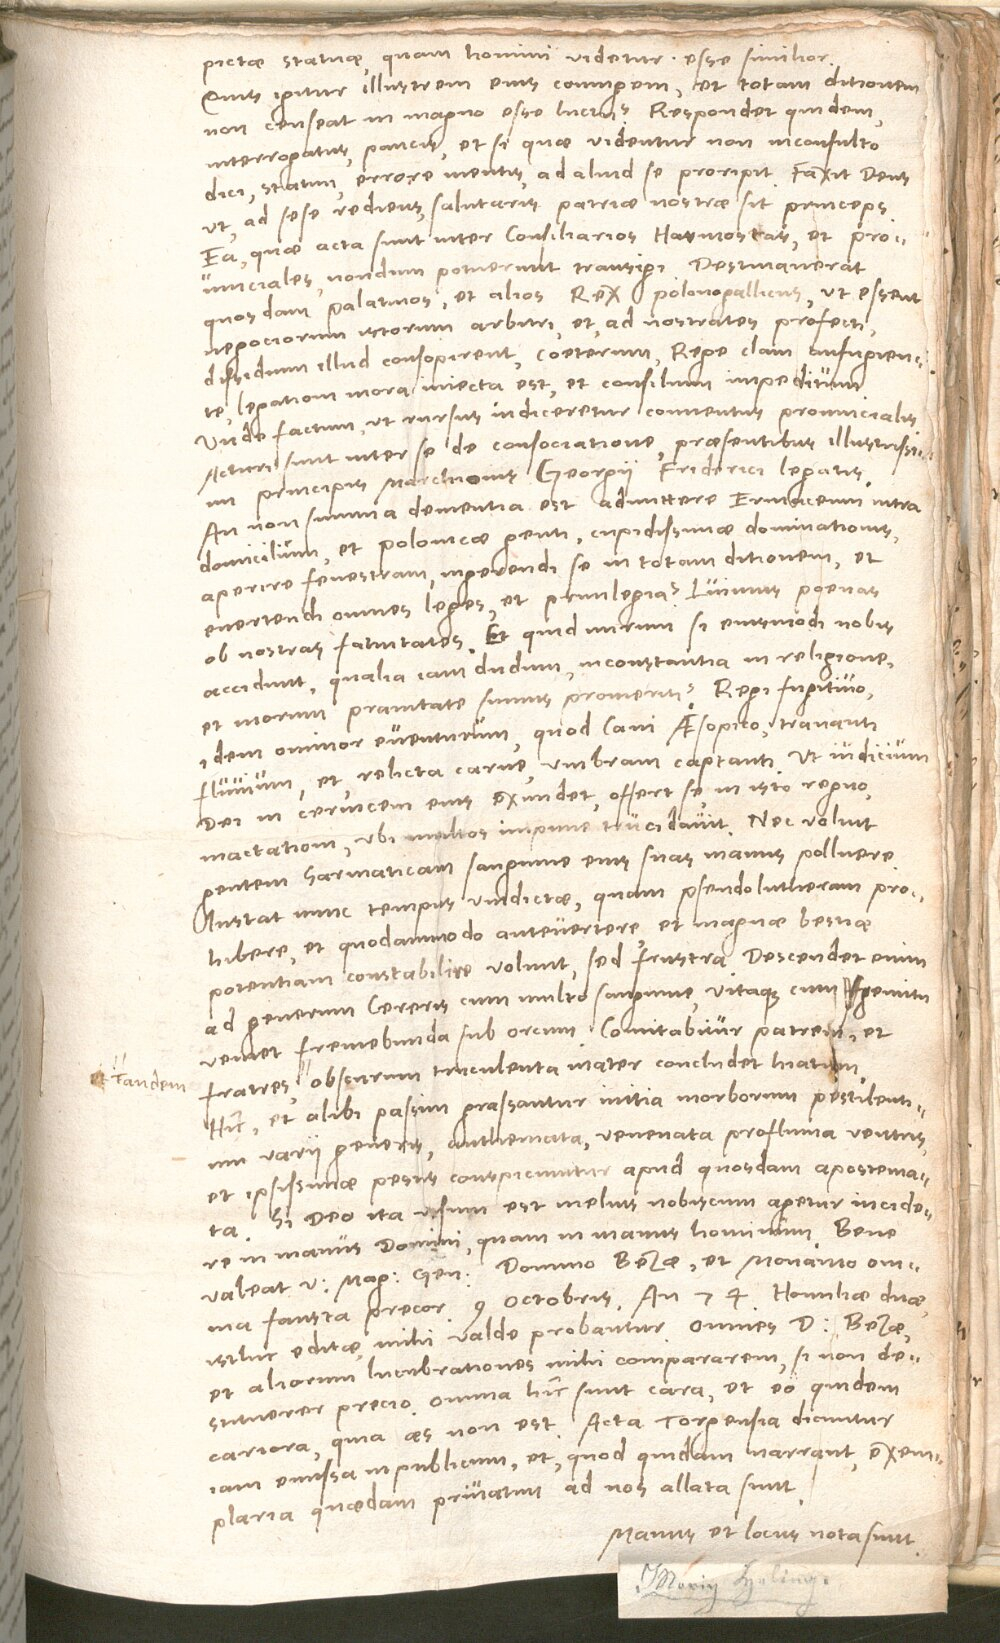 pictæ statuæ, quam homini videtur esse similior.
Quis igitur illustrem eius coniugem, et totam ditionem
non censeat in magno esse luctu? Respondet quidem,
interrogatus, paucis, et si quæ videntur non inconsulto
dici, statim, errore mentis, ad aliud se proripit. Faxit Deus
ut, ad sese rediens, salutaris patriæ nostræ sit princeps.
Ea, quæ acta sunt inter Consiliarios Harmostas, et pro-
uinciales, nondum potuerunt transigi. Destinauerat
quosdam palatinos, et alios Rex polonogallicus, ut essent
negociorum istorum arbitri, et, ad nostrates profecti,
dissidium illud consopirent, Coeterum, Rege clam aufugien-
te, legationi mora iniecta est, et consilium impeditum
Unde factum, ut rursus indiceretur conuentus prouincialis
Acturi sunt inter se de consociatione, præsentibus illustrissi-
mi principis Marchionis Georgij Friderici legatis.
An non summa dementia est admittere Erinaceum intra
domicilium, et polonicæ genti, cupidissimæ dominationis,
aperire fenestram, ingerendi se in totam ditionem, et
euertendi omnes leges, et priuilegia? Luimus poenas
ob nostras fatuitates. Et quid mirum si eiusmodi nobis
accidunt, qualia iam dudum, inconstantia in religione,
et morum prauitate sumus promeriti? Regi fugitiuo,
idem ominor euenturum, quod Cani Æsopico, trananti
fluuium, et, relicta carne, umbram captanti. Ut iudicium
Dei in ceruicem eius exundet, offert se, in isto regno,
mactationi, ubi multos impune trucidauit. Nec voluit
gentem Sarmaticam sanguine eius suas manus polluere.
Instat nunc tempus vindictæ, quam pseudolutherani pro-
hibere, et quodammodo anteuertere, et magnæ bestiæ
potentiam constabilire volunt, sed frustra Descendet enim
ad generum Cereris cum multo sanguine, vitaque cum gemitu
veniet fremebunda sub orcum Comitabitur patrem, et
fratres, obscurum truculenta mater concludet hiatum,
et tandem
Hic, et alibi passim grassantur initia morborum pestilenti-
um varij generis, anthemata, venenata profluuia ventris,
et ipsissimæ pestis conspiciuntur apud quosdam apostema-
ta. Si Deo ita visum est melius nobiscum agetur incide-
re in manus Domini, quam in manus hominum. Bene
valeat V: Mag: Gen: Domino Bezæ, et Monauio om-
nia fausta precor. 9 Octobris. An 74 Homiliæ duæ,
istic editæ, mihi valde probantur. Omnes D: Bezæ,
et aliorum lucubrationes mihi compararem, si non de-
stituerer precio. Omnia hic sunt cara, et eo quidem
cariora, quia æs non est. Acta Torgensia dicuntur
iam emissa in publicum, et, quod quidam narrant, exem-
plaria quædam priuatim ad nos allata sunt.
Manus et locus nota sunt.